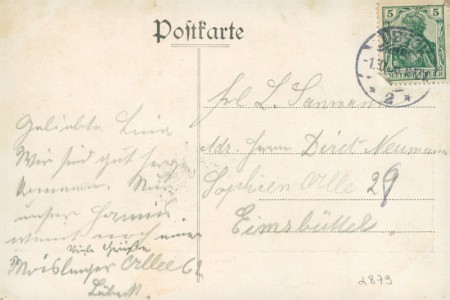 Postkarte
5
5
Frl L. Sanmann
Adr. Herrn Direct. Neumann
Sophien Allee 29
Eimsbüttel
Geliebte Lina
Wir sind gut
kommen. Nur
unser
noch
Viele Grüße
Moislinger Allee 62
Lübeck.
2879